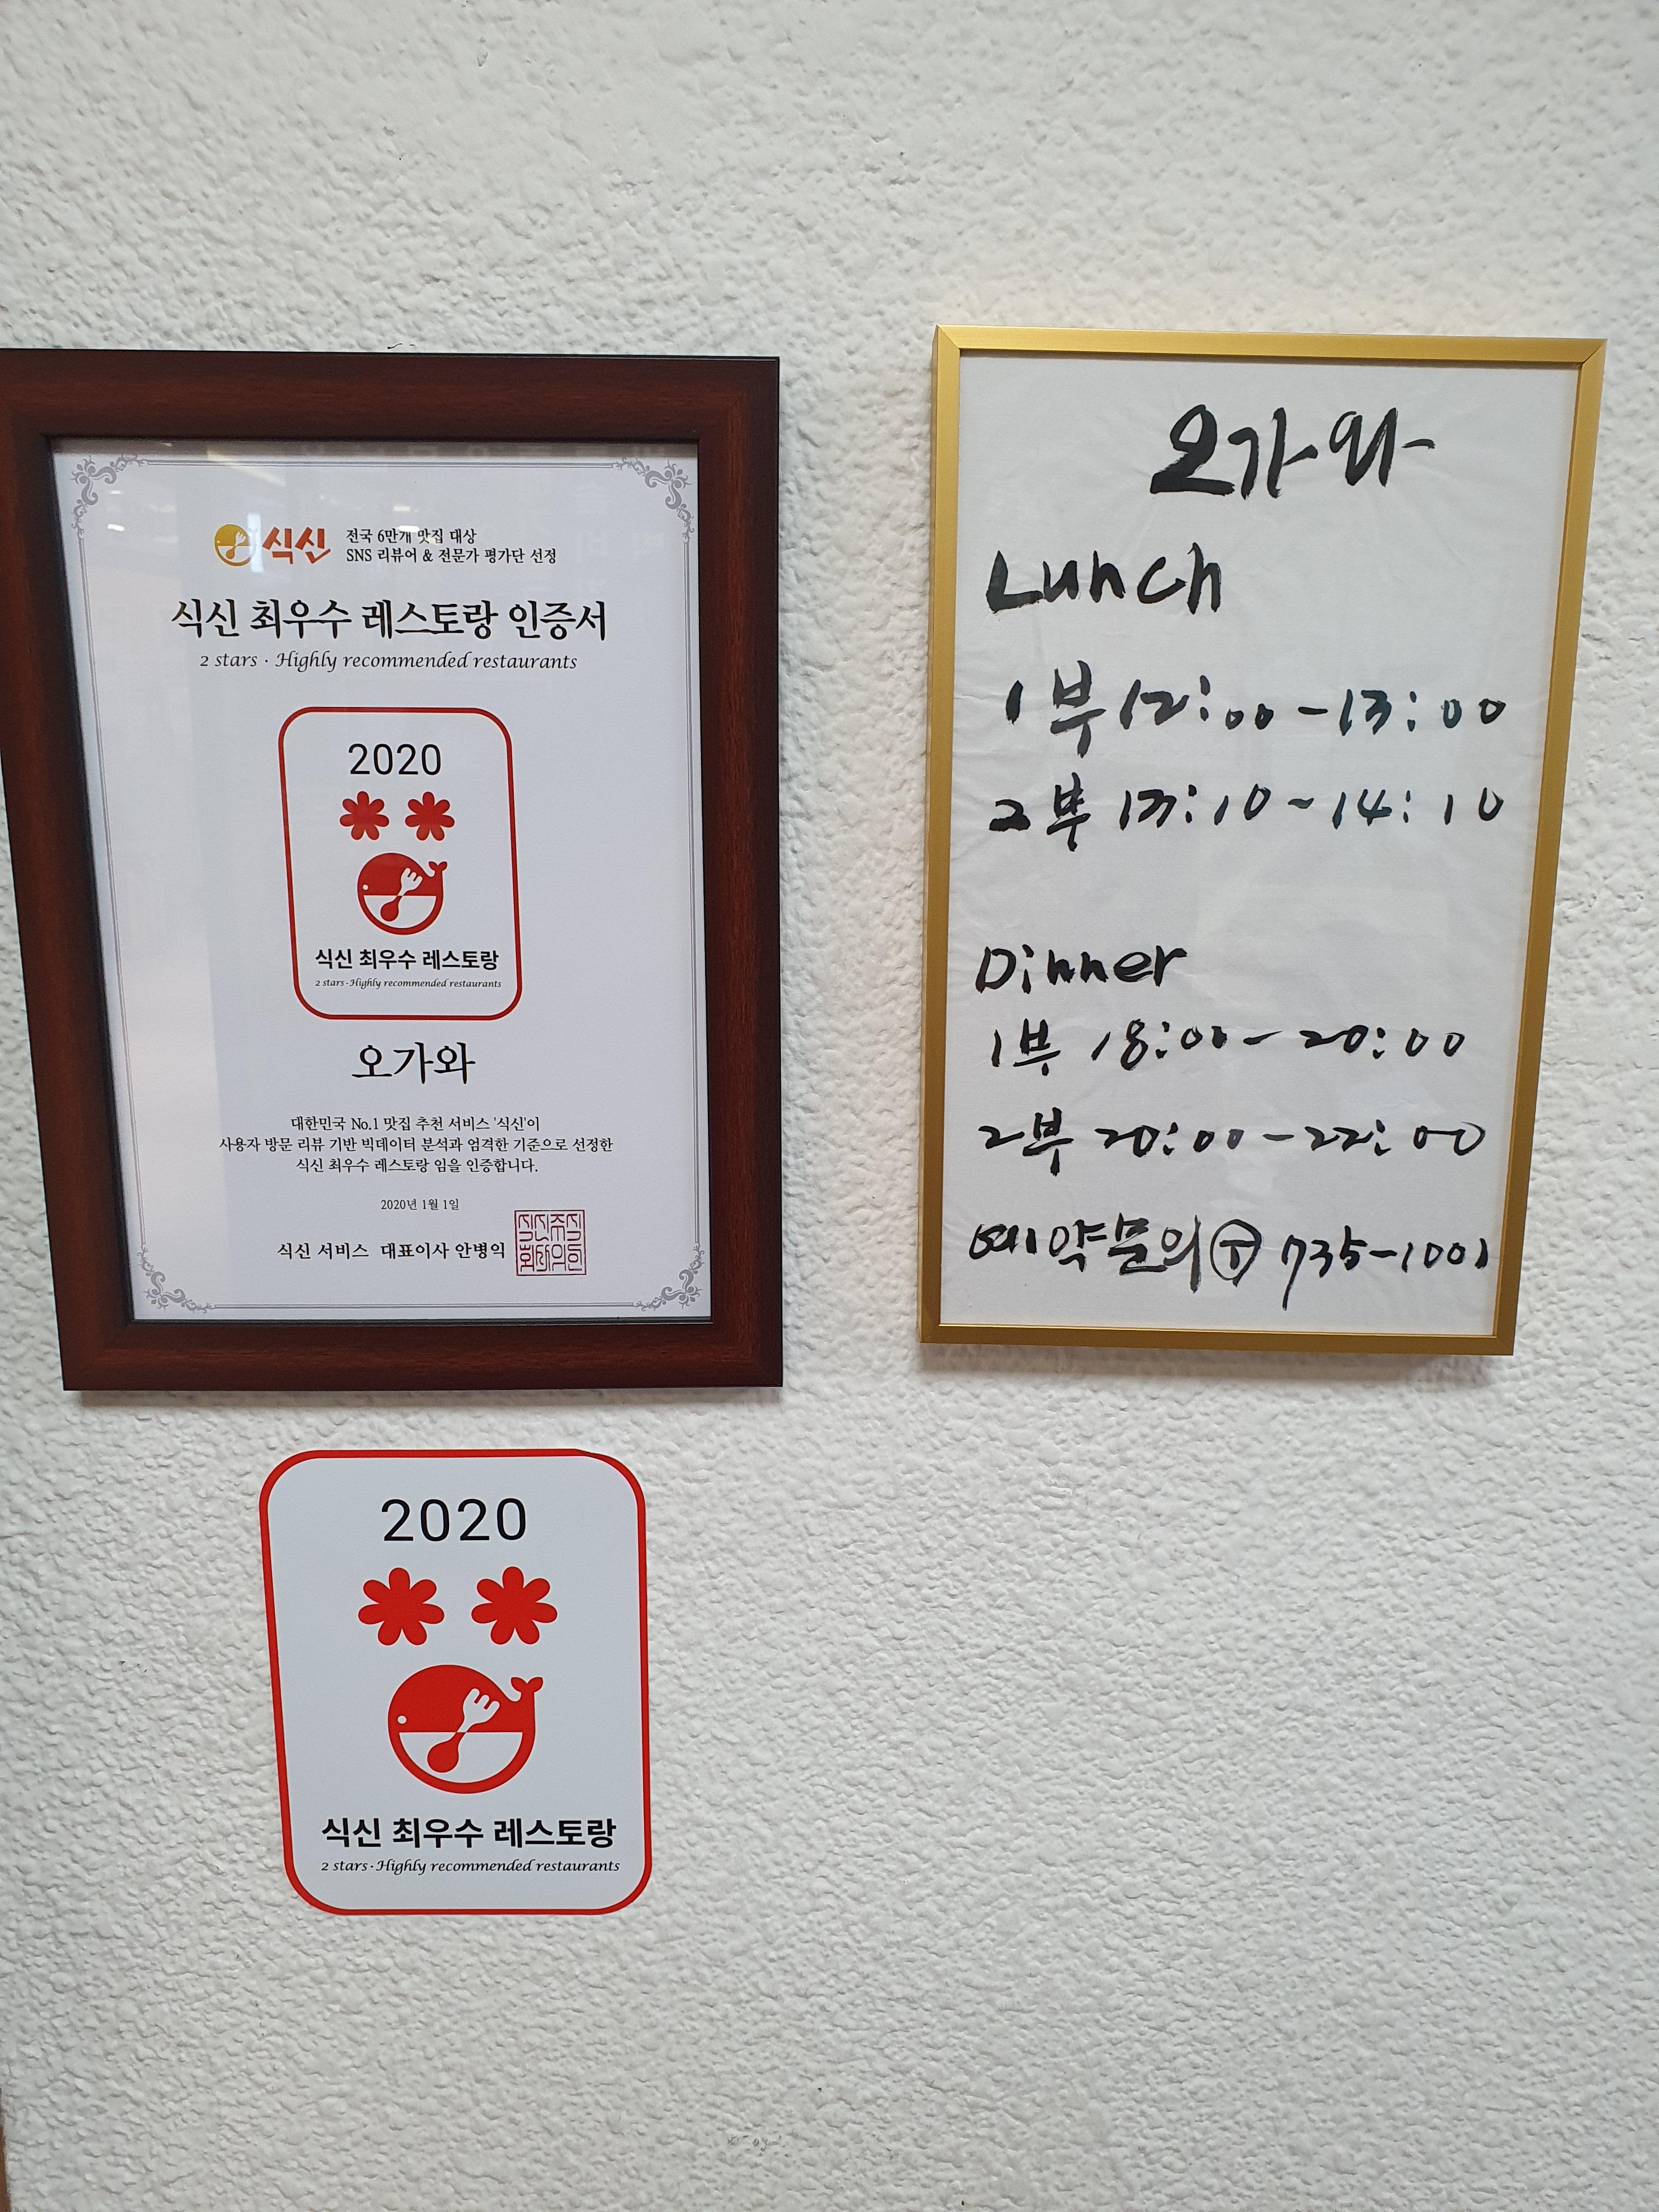 식신 전국 6만개 맛집 대상
SNS 리뷰어 & 전문가 평가단 선정
식신 최우수 레스토랑 인증서
2 stars · Highly recommended restaurants
2020
식신 최우수 레스토랑
2 stars·Highly recommended restaurants
오가와
대한민국 No.1 맛집 추천 서비스 '식신'이
사용자 방문 리뷰 기반 빅데이터 분석과 엄격한 기준으로 선정한
식신 최우수 레스토랑 임을 인증합니다.
2020년 1월 1일
식신 서비스 대표이사 안병익
오가와
Lunch
1부 12:00-13:00
2부 13:10~14:10
Dinner
1부 18:00-20:00
2부 20:00-22:00
예약문의 T 735-1001
2020
식신 최우수 레스토랑
2 stars·Highly recommended restaurants